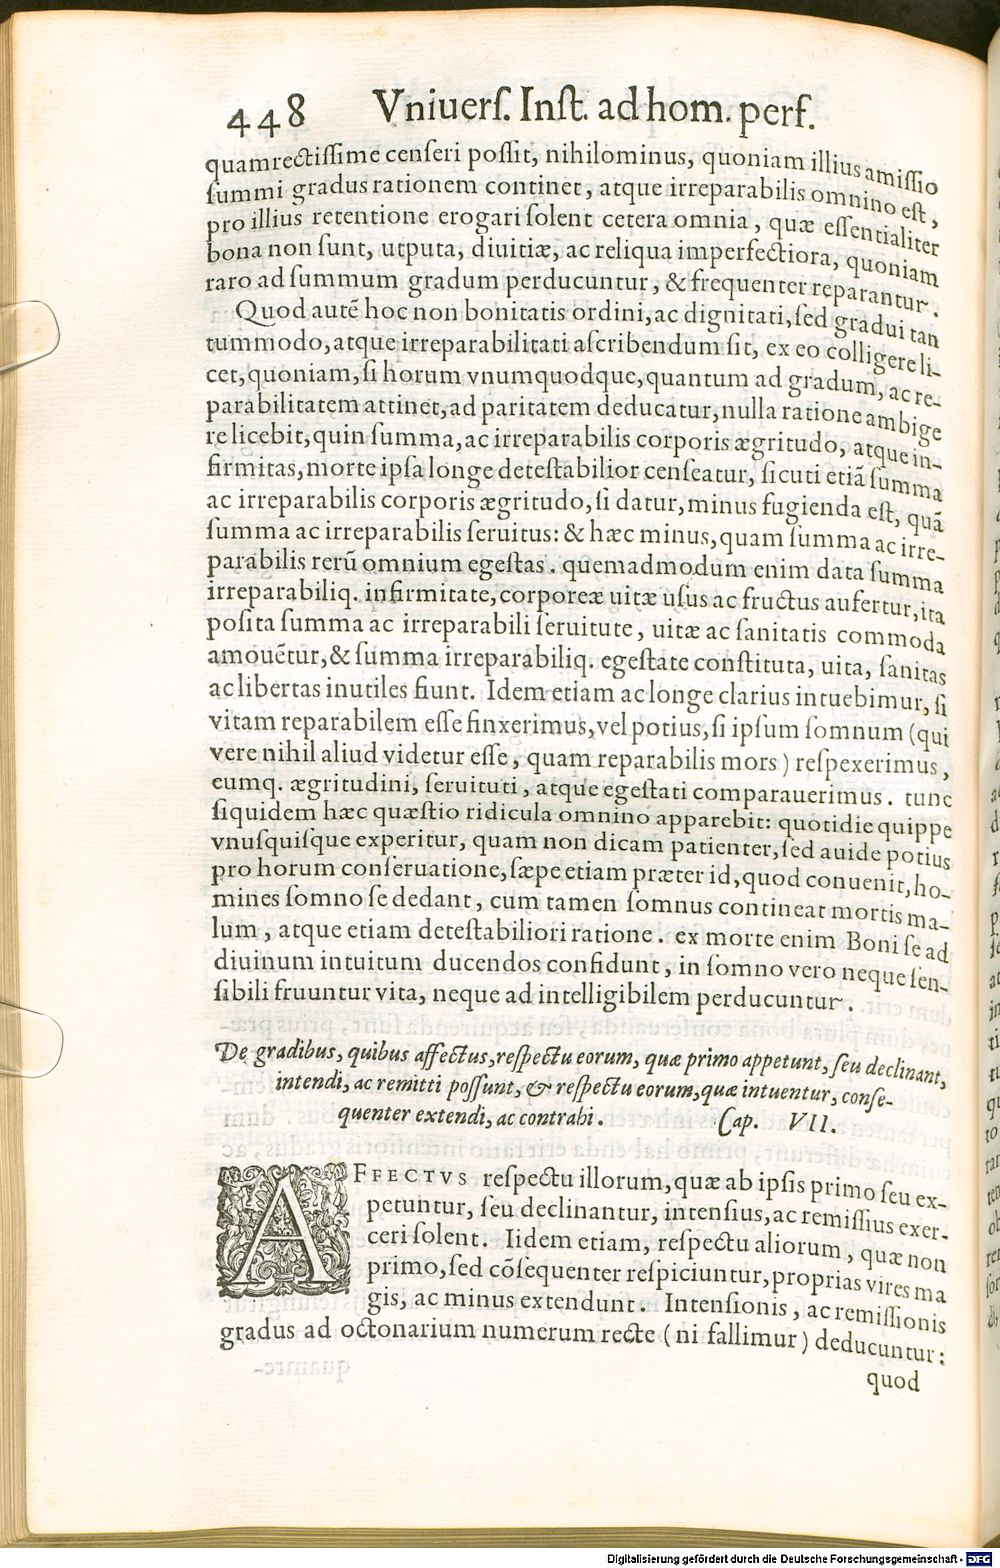 448 Vniuerſ. Inſt. ad hom. perf.
quam rectiſſime cenſeri poſſit, nihilominus, quoniam illius amiſſio
ſummi gradus rationem continet, atque irreparabilis omnino eſt,
pro illius retentione erogari ſolent cetera omnia, quæ eſſentialiter
bona non ſunt, utputa, diuitiæ, ac reliqua imperfectiora, quoniam
raro ad ſummum gradum perducuntur, & frequenter reparantur.
Quod autẽ hoc non bonitatis ordini, ac dignitati, ſed gradui tan
tummodo, atque irreparabilitati aſcribendum ſit, ex eo colligere li-
cet, quoniam, ſi horum vnumquodque, quantum ad gradum, ac re-
parabilitatem attinet, ad paritatem deducatur, nulla ratione ambige
re licebit, quin ſumma, ac irreparabilis corporis ægritudo, atque in-
firmitas, morte ipſa longe deteſtabilior cenſeatur, ſicuti etiã ſumma
ac irreparabilis corporis ægritudo, ſi datur, minus fugienda eſt, quã
ſumma ac irreparabilis ſeruitus: & hæc minus, quam ſumma ac irre-
parabilis rerũ omnium egeſtas. quemadmodum enim data ſumma
irreparabiliq. infirmitate, corporeæ uitæ uſus ac fructus aufertur, ita
poſita ſumma ac irreparabili ſeruitute, uitæ ac ſanitatis commoda
amouẽtur, & ſumma irreparabiliq. egeſtate conſtituta, uita, ſanitas
ac libertas inutiles fiunt. Idem etiam ac longe clarius intuebimur, ſi
vitam reparabilem eſſe finxerimus, vel potius, ſi ipſum ſomnum (qui
vere nihil aliud videtur eſſe, quam reparabilis mors) reſpexerimus,
eumq. ægritudini, ſeruituti, atque egeſtati comparauerimus. tunc
ſiquidem hæc quæſtio ridicula omnino apparebit: quotidie quippe
vnuſquiſque experitur, quam non dicam patienter, ſed auide potius
pro horum conſeruatione, ſæpe etiam præter id, quod conuenit, ho-
mines ſomno ſe dedant, cum tamen ſomnus contineat mortis ma-
lum, atque etiam deteſtabiliori ratione. ex morte enim Boni ſe ad
diuinum intuitum ducendos confidunt, in ſomno vero neque ſen-
ſibili fruuntur vita, neque ad intelligibilem perducuntur.
De gradibus, quibus affectus, reſpectu eorum, quæ primo appetunt, ſeu declinant,
intendi, ac remitti poſſunt, & reſpectu eorum, quæ intuentur, conſe-
quenter extendi, ac contrahi. Cap. VII.
AFFECTVS reſpectu illorum, quæ ab ipſis primo ſeu ex-
petuntur, ſeu declinantur, intenſius, ac remiſſius exer-
ceri ſolent. Iidem etiam, reſpectu aliorum, quæ non
primo, ſed cõſequenter reſpiciuntur, proprias vires ma
gis, ac minus extendunt. Intenſionis, ac remiſſionis
gradus ad octonarium numerum recte (ni fallimur) deducuntur:
quod
Digitalisierung gefördert durch die Deutsche Forschungsgemeinschaft - DFG